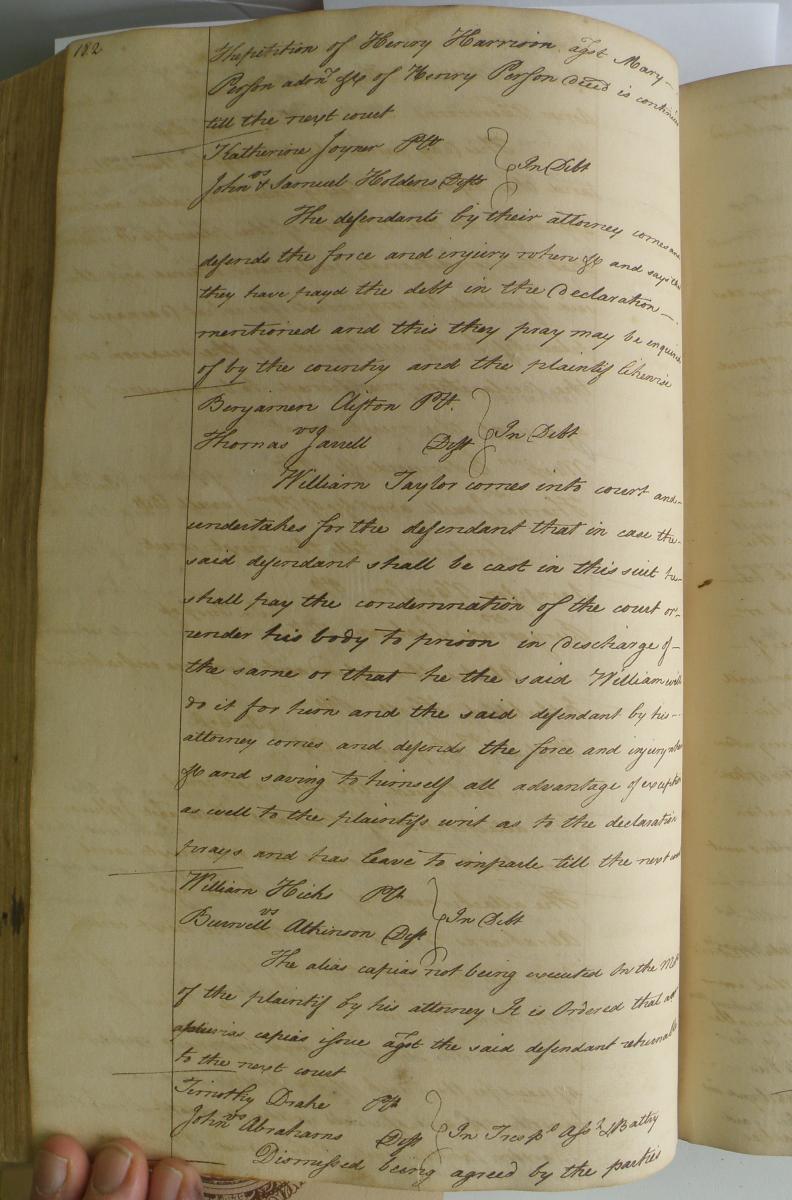 182
The petition of Henry Harrison agst Mary
Person adrx &c of Henry Person decd is continued
till the next court
Katherine Joyner Plt
vs
John & Samuel Holdens Defts
In Debt
The defendants by their attorney comes and
defends the force and injury when &c and says that
they have payd the debt in the declaration
mentioned and this they pray may be inquired
of by the country and the plaintif likewise
Benjamen Clifton Plt.
vs
Thomas Jarrell Deft
In Debt
William Taylor comes into court and
undertakes for the defendant that in case the
said defendant shall be cast in this suit he
shall pay the condemnation of the court or
render his body to prison in discharge of
the same or that he the said William will
do it for him and the said defendant by his
attorney comes and defends the force and injury when
&c and saving to himself all advantage of exception
as well to the plaintifs writ as to the declaration
prays and has leave to imparle till the next court
William Hicks Plt
vs
Burwell Atkinson Deft
In Debt
The alias capias not being executed On the Mo
of the plaintif by his attorney It is Ordered that a
pluries capias issue agst the said defendant returnable
to the next court
Timothy Drake Plt
vs
John Abrahams Deft
In Tresps Asst & Battry
Dismissed being agreed by the parties